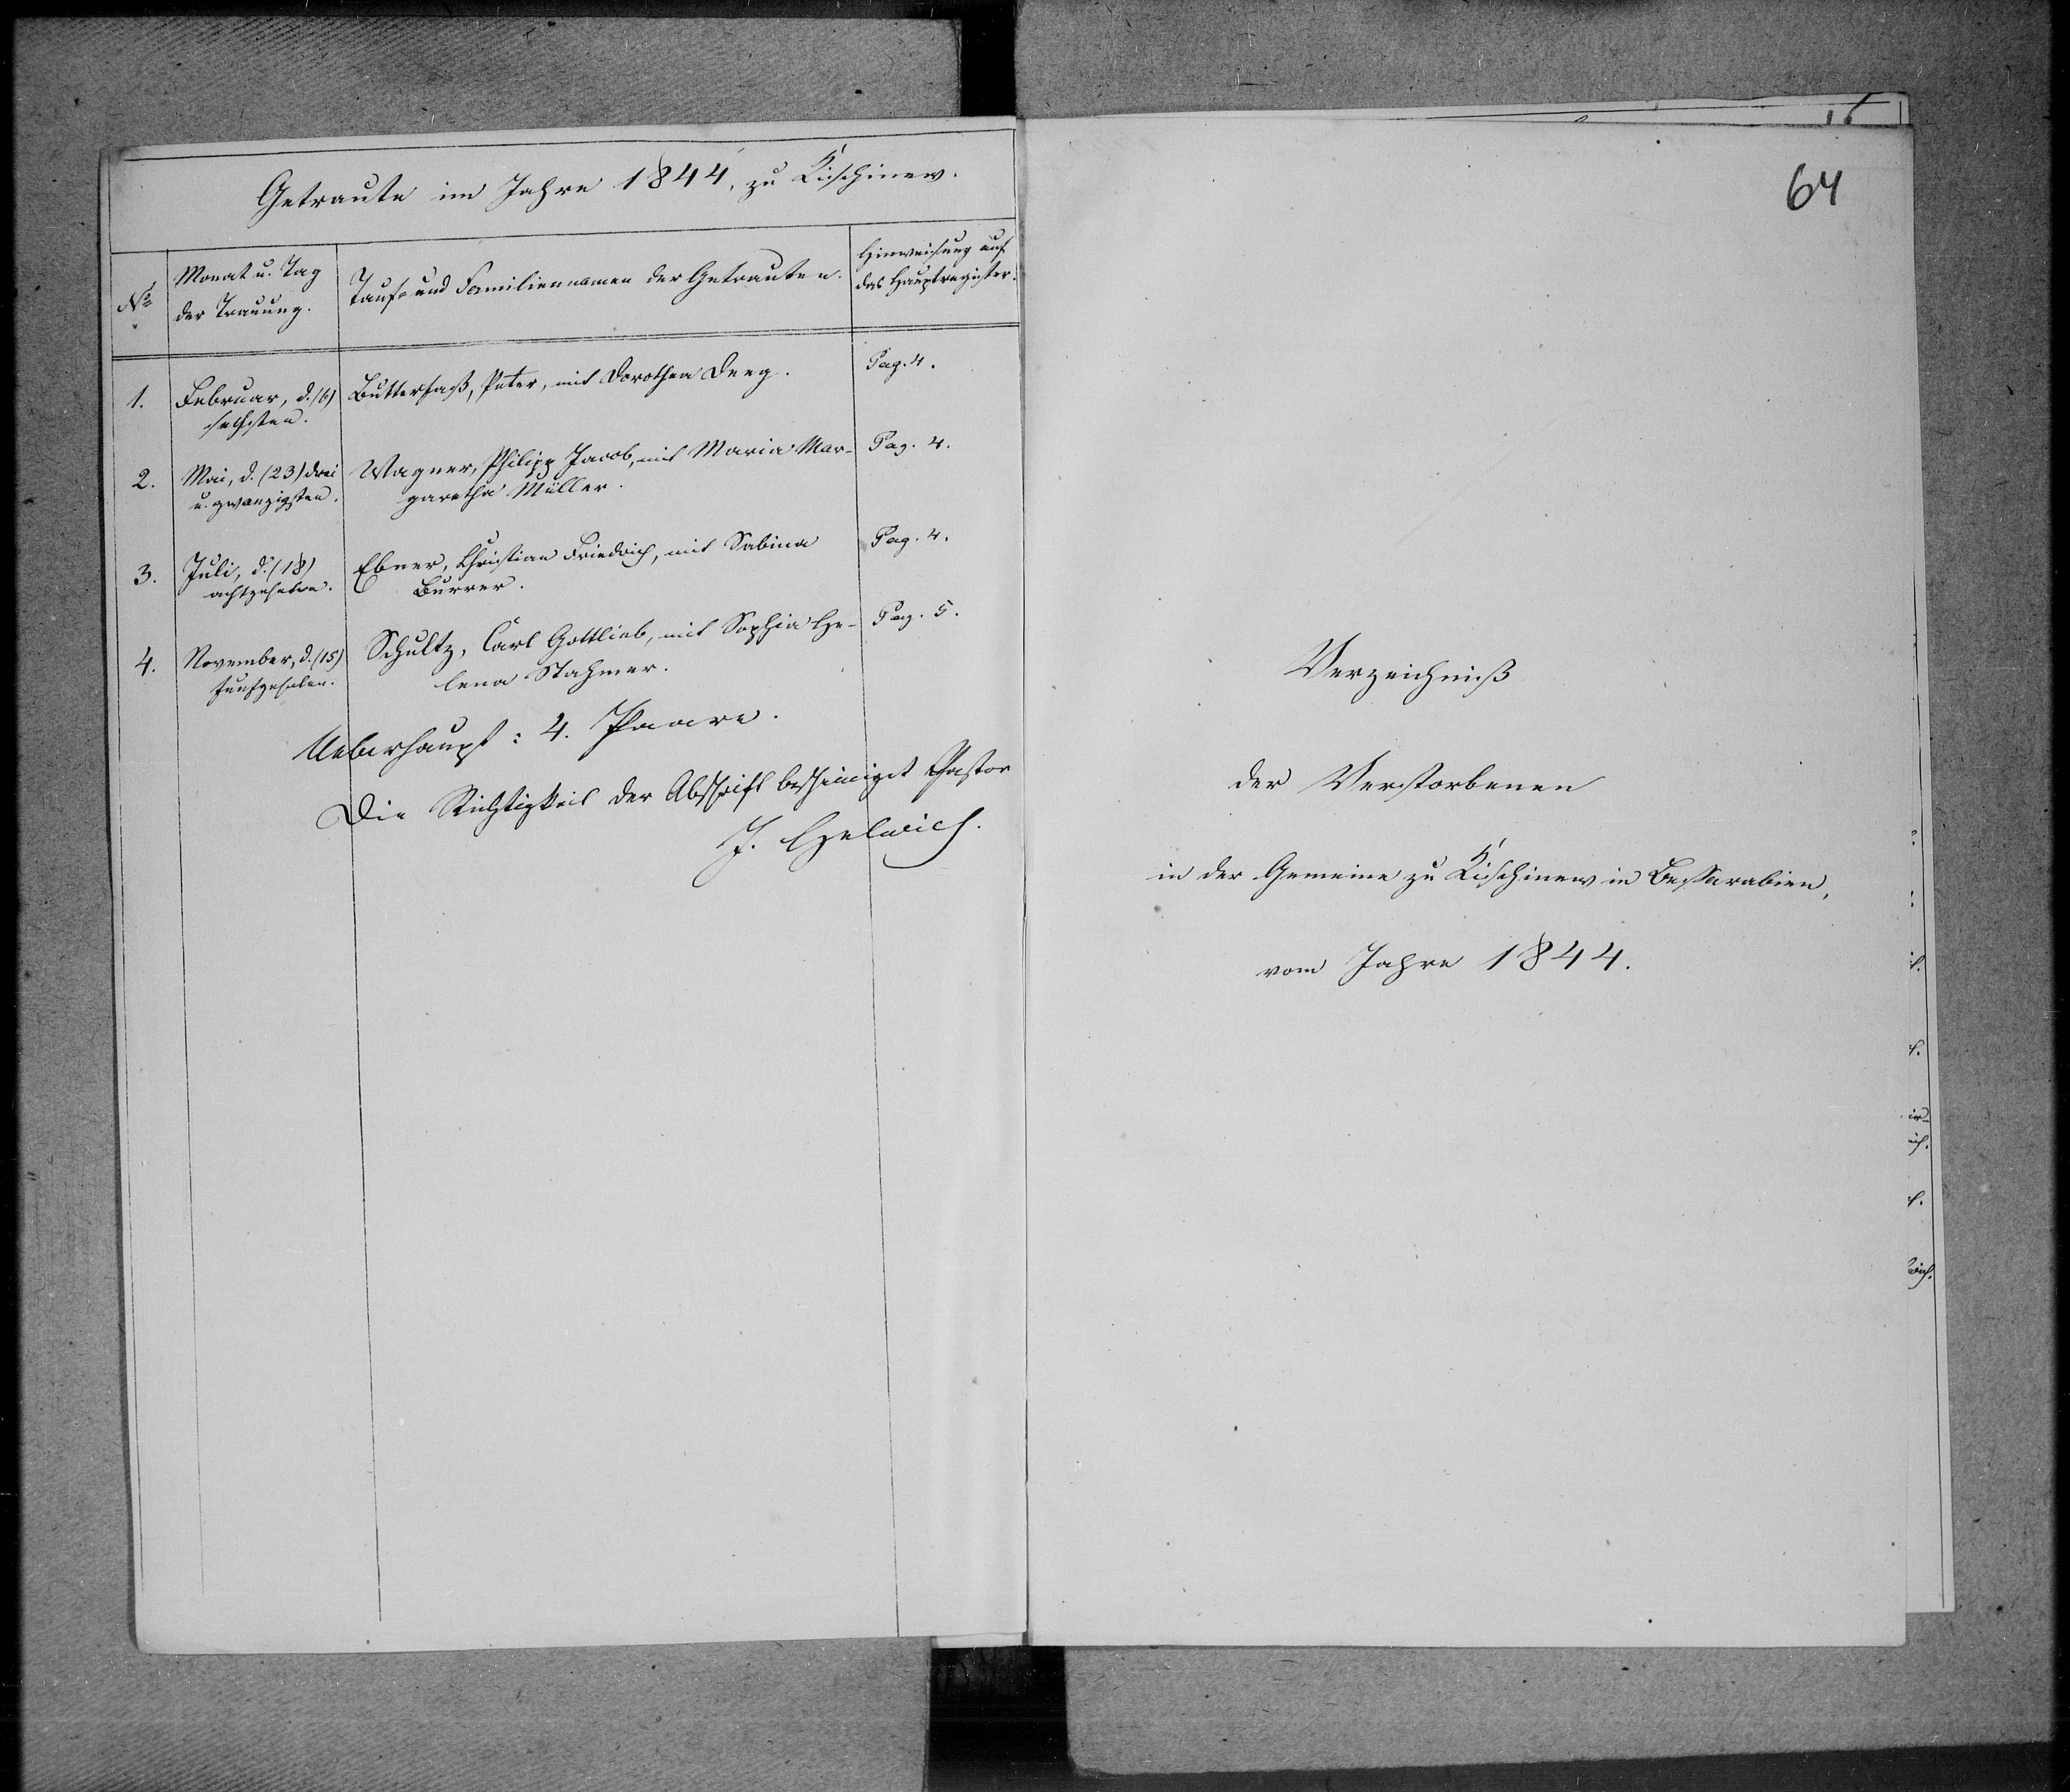 Getraute im Jahre 1844, zu Kischinew.
No
Monat u. Tag
der Trauung.
Tauf- und Familiennamen der Getrauten.
Hinweisung auf
das Hauptregister.
1.
Februar, d. (6)
sechsten.
Butterfaß, Peter, mit Dorothea Deeg.
Pag. 4.
2.
Mai, d. (23) drei
u. zwanzigsten.
Wagner, Philipp Jacob, mit Maria Mar-
garetha Müller.
Pag. 4.
3.
Juli, d. (18)
achtzehnten.
Ebner, Christian Friedrich, mit Sabina
Burrer.
Pag. 4.
4.
November, d. (15)
funfzehnten.
Schultz, Carl Gottlieb, mit Sophia He-
lena Stahmer.
Pag. 5.
Ueberhaupt: 4. Paare.
Die Richtigkeit der Abschrift bescheiniget Pastor
J. Helwich.
64
Verzeichniß
der Verstorbenen
in der Gemeine zu Kischinew in Bessarabien,
vom Jahre 1844.